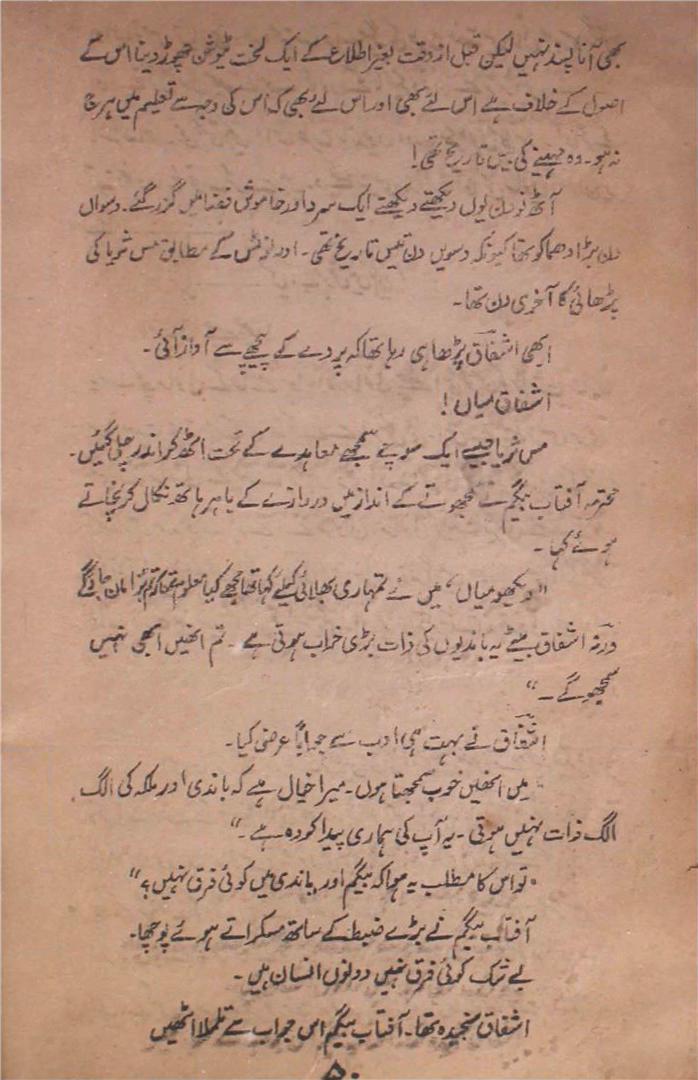 بھی آنا پسند نہیں لیکن قبل از وقت بغیر اطلاع کے ایک لخت ٹیوشن چھوڑ دینا اس کے
اصول کے خلاف ہے اس لئے بھی اور اس لئے بھی کہ اس کی وجہ سے تعلیم میں ہرج
نہ ہو۔ وہ مہینے کی بیس تاریخ تھی!
آٹھ نو دن یوں دیکھتے دیکھتے ایک سرد اور خاموش فضا میں گزر گئے۔ دسواں
دن بڑا دھماکو تھا کیونکہ دسویں دن تیس تاریخ تھی۔ اور نوٹس کے مطابق مس ثریا کی
پڑھائی کا آخری دن تھا۔
ابھی اشفاق پڑھا ہی رہا تھا کہ پردے کے پیچھے سے آواز آئی۔
اشفاق میاں!
مس ثریا جیسے ایک سوچے سمجھے معاہدے کے تحت اٹھ کر اندر چلی گئیں۔
محترمہ آفتاب بیگم نے سمجھوتے کے انداز میں دروازے کے باہر ہاتھ نکال کر نچاتے
ہوئے کہا۔
"دیکھو میاں، میں نے تمہاری بھلائی کیلئے کہا تھا مجھے کیا معلوم تھا کہ تم برا مان جاؤگے
ورنہ اشفاق بیٹے یہ باندیوں کی ذات بڑی خراب ہوتی ہے۔ تم انھیں ابھی نہیں
سمجھو گے۔"
اشفاق نے بہت ہی ادب سے جواباً عرض کیا۔
"میں انھیں خوب سمجھتا ہوں۔ میرا خیال ہے کہ باندی اور ملکہ کی الگ
الگ ذات نہیں ہوتی۔ یہ آپ کی ہماری پیدا کردہ ہے۔"
"تو اس کا مطلب یہ ہوا کہ بیگم اور باندی میں کوئی فرق نہیں؟"
آفتاب بیگم نے بڑے ضبط کے ساتھ مسکراتے ہوئے پوچھا۔
بے شک کوئی فرق نہیں دونوں انسان ہیں۔
اشفاق سنجیدہ تھا۔ آفتاب بیگم اس جواب سے تلملا اٹھیں
۵۰